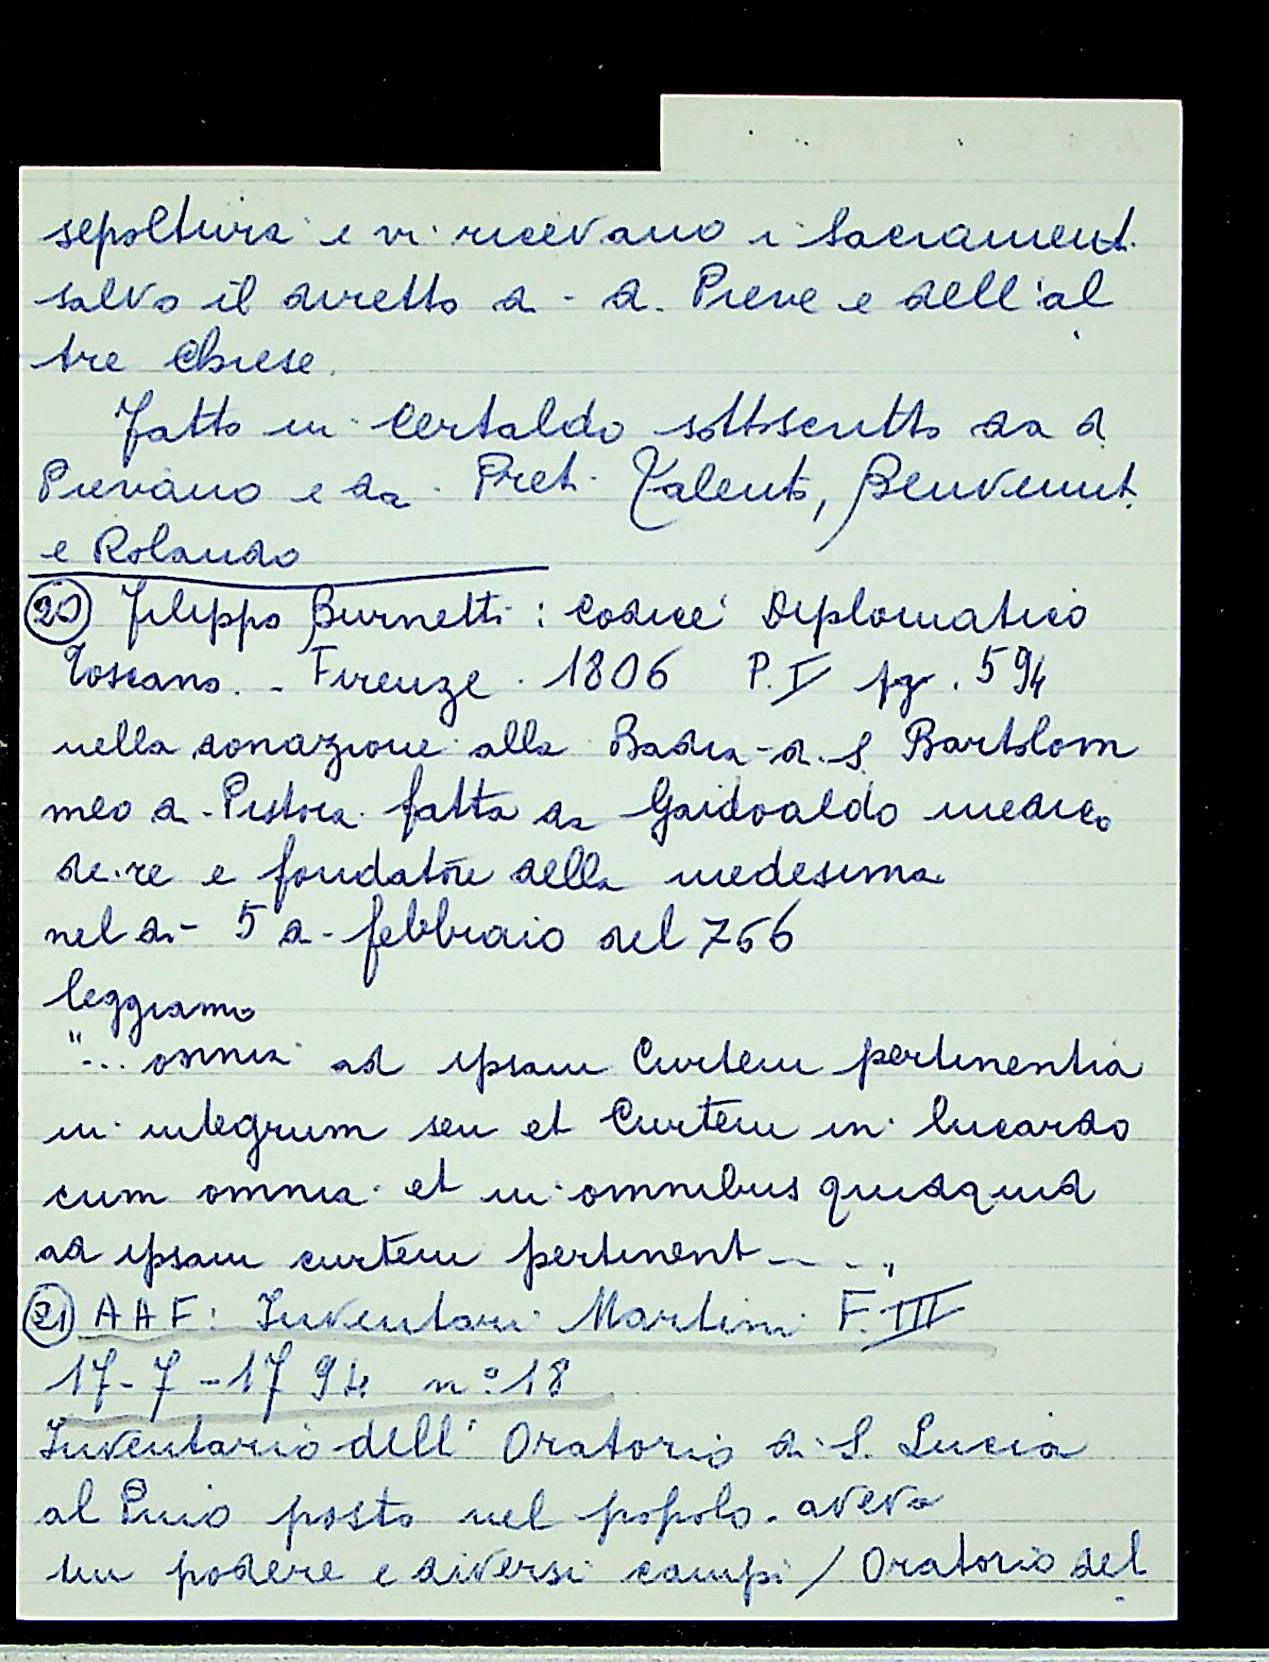 sepoltura e vi ricevano i Sacrament.
salvo il diretto d. d. Pieve e dell'al
tre Chiese.
Fatto in Certaldo sottoscritto da d.
Pievano e da Preti Valent, Benvenut.
e Rolando
20 Filippo Burnetti: Codice Diplomatico
Toscano. - Firenze 1806 P. I pg. 594
nella donazione alla Badia di S. Bartolom
meo di Pistoia fatta da Gaidoaldo medico
de.re e fondatore della medesima
nel dì 5 di febbraio del 766
leggiamo
"... omnia ad ipsam Curtem pertinentia
in integrum seu et Curtem in lucardo
cum omnia et in omnibus quidquid
ad ipsam curtem pertinent - - . ,,
21 AAF: Inventari Martini F. III
17-7-1794 n° 18
Inventario dell' Oratorio di S. Lucia
al Pino posto nel popolo. aveva
un podere e diversi campi / Oratorio del